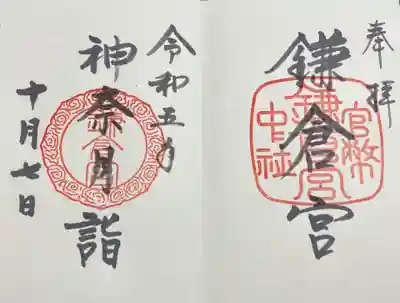 奉拝
鎌倉宮
官幣
鎌倉宮
中社
令和五年
神奈月詣
十月七日